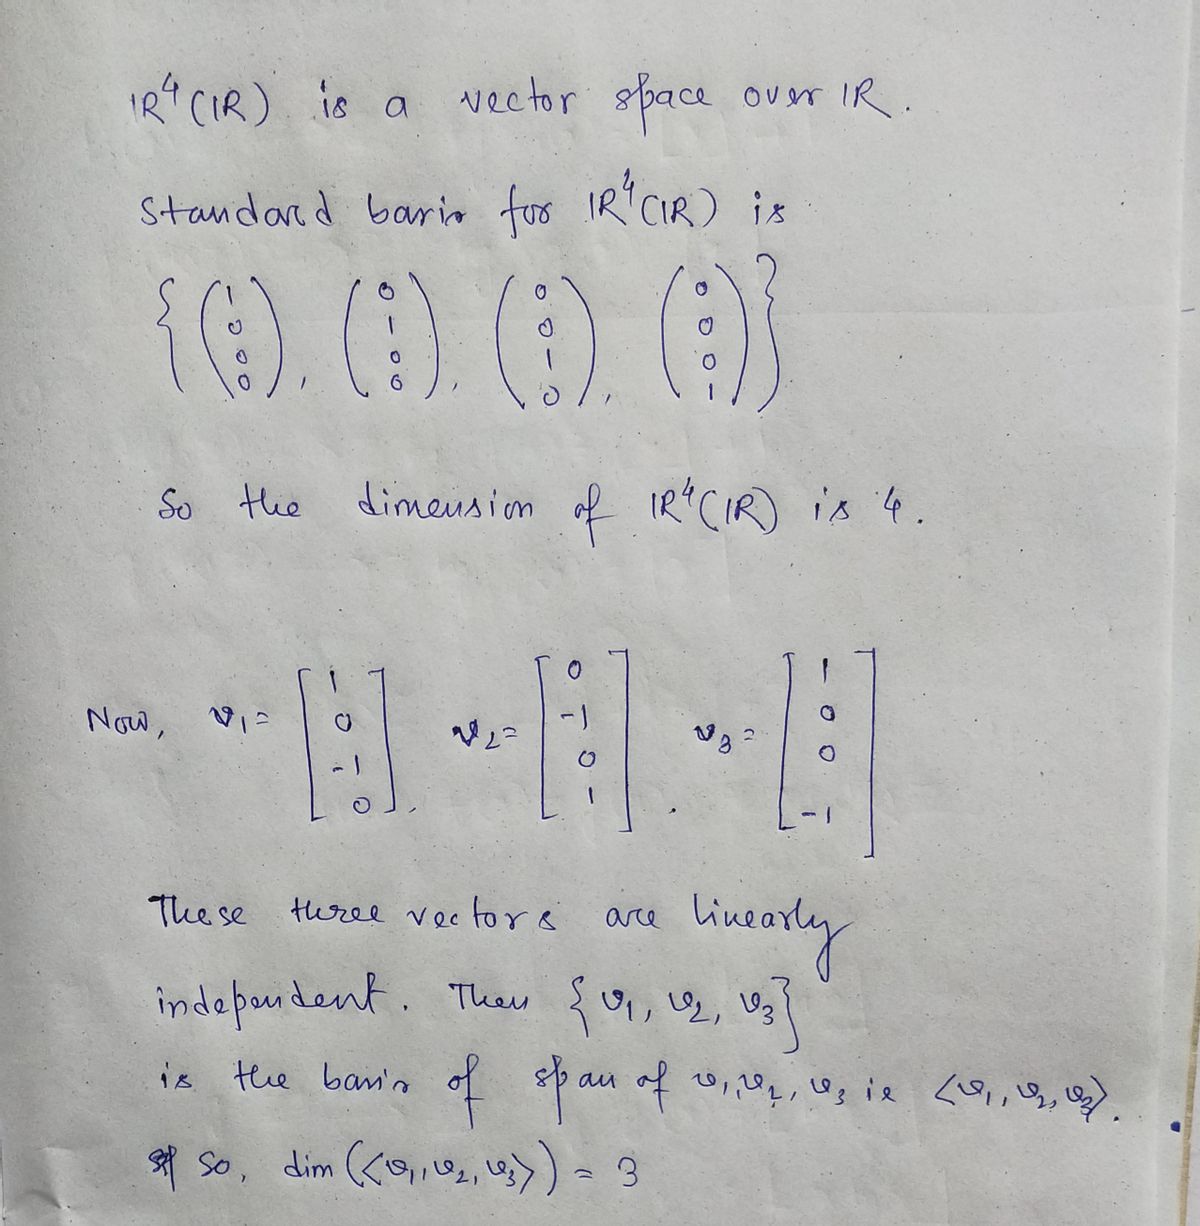 ℝ⁴(ℝ) is a vector space over ℝ.
Standard basis for ℝ⁴(ℝ) is
{(1 0 0 0), (0 1 0 0), (0 0 1 0), (0 0 0 1)}
So the dimension of ℝ⁴(ℝ) is 4.
Now, v₁ = [1 0 -1 0], v₂ = [0 -1 0 1], v₃ = [1 0 0 -1]
These three vectors are linearly
independent. Then {v₁, v₂, v₃}
is the basis of span of v₁, v₂, v₃ ie <v₁, v₂, v₃>.
So, dim (<v₁, v₂, v₃>) = 3